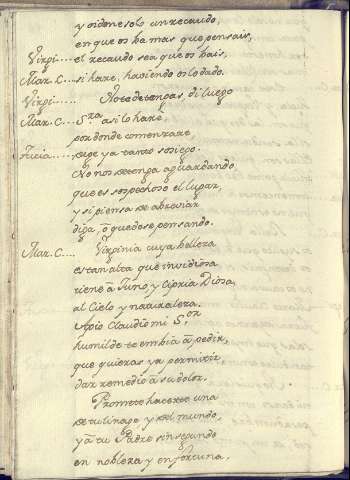 y oidone solo un recaudo,
en que os ba mas que pensais,
Virgi.... el recaudo sea que os bais,
Mar. C.... si haré, haviendo oslo dado.
Virgi..... No te detengas, di luego
Mar. C.... S.ra asi lo haré,
por donde comenzaré,
Ficia..... dege ya tanto sosiego.
No nos detenga aguardando
que es sospechoso el lugar,
y si piensa de abreviar
diga, ō quedese pensando.
Mar. C.... Virginia cuya belleza
es tan alta que invidiosa
tiene ā Juno y Cipria Diosa,
al Cielo y naturaleza.
Apio Claudio mi S.or
humilde te embia ā pedir,
que quieras ya permitir
dar remedio ā su dolor.
Promete hacerte una
de tu linage y del mundo,
y ā tu Padre sin segundo
en nobleza y en fortuna.